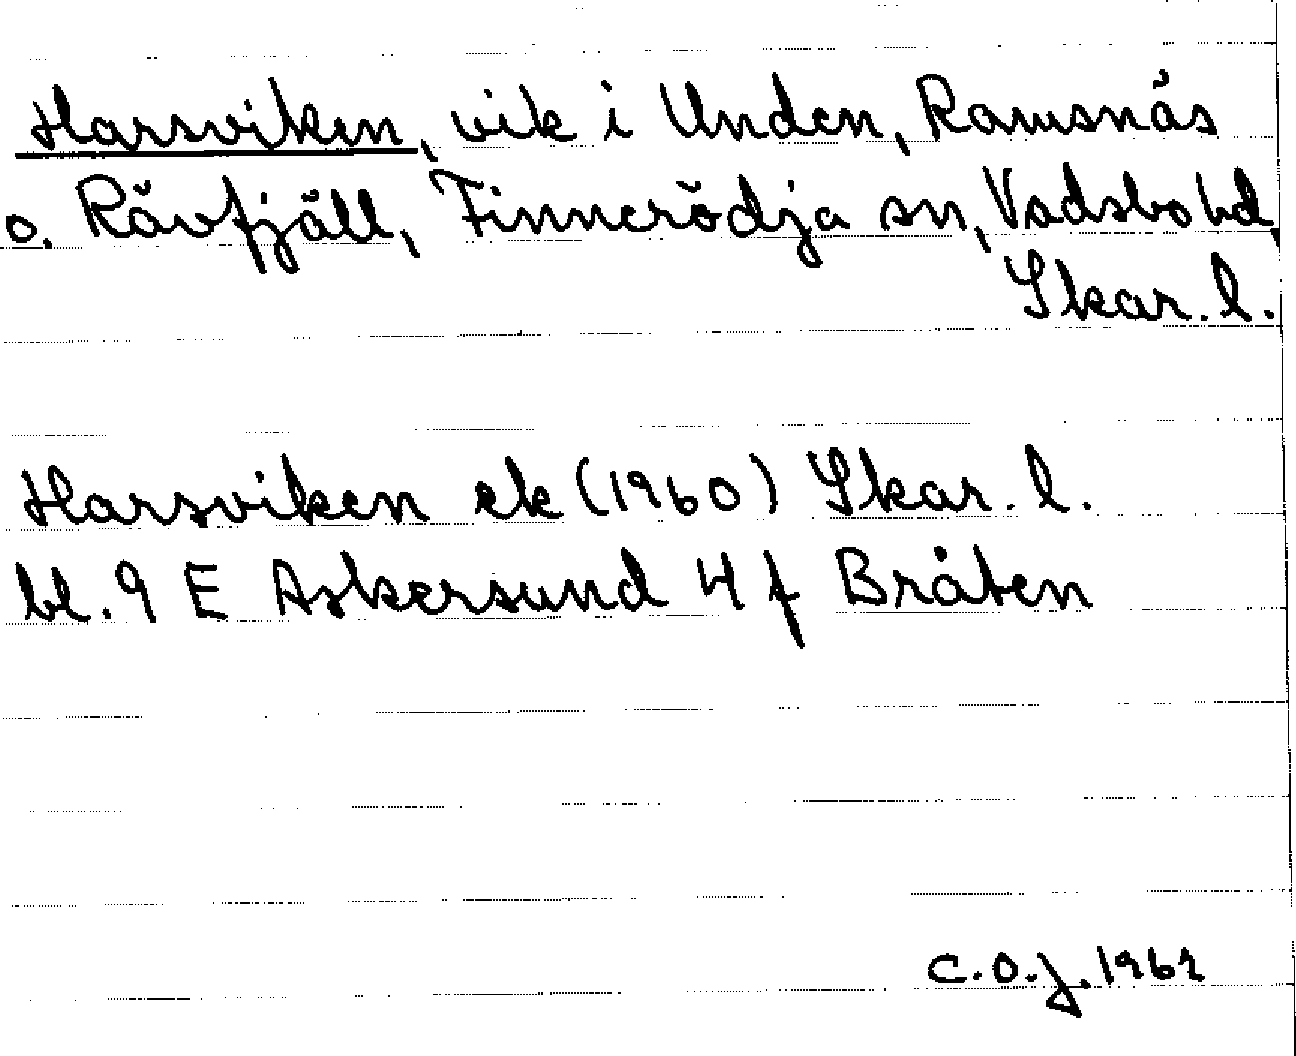 Harsviken, vik i Unden, Ramsnäs
o. Rävfjäll, Finnerödja sn, Vadsbo hd,
Skar. l.
Harsviken ek (1960) Skar. l.
bl. 9 E Askersund 4 f Bråten
C.O.J. 1962